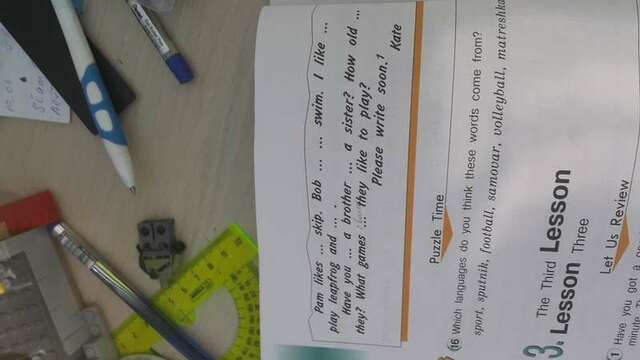 Pam likes ... skip. Bob ... ... swim. I like ...
play leapfrog and ... .
Have you ... a brother ... a sister? How old ...
they? What games ... they like to play?
Please write soon.¹
Kate
Puzzle Time
16 Which languages do you think these words come from?
sport, sputnik, football, samovar, volleyball, matreshka
3. The Third Lesson
Lesson Three
Let Us Review
1 Have you got a